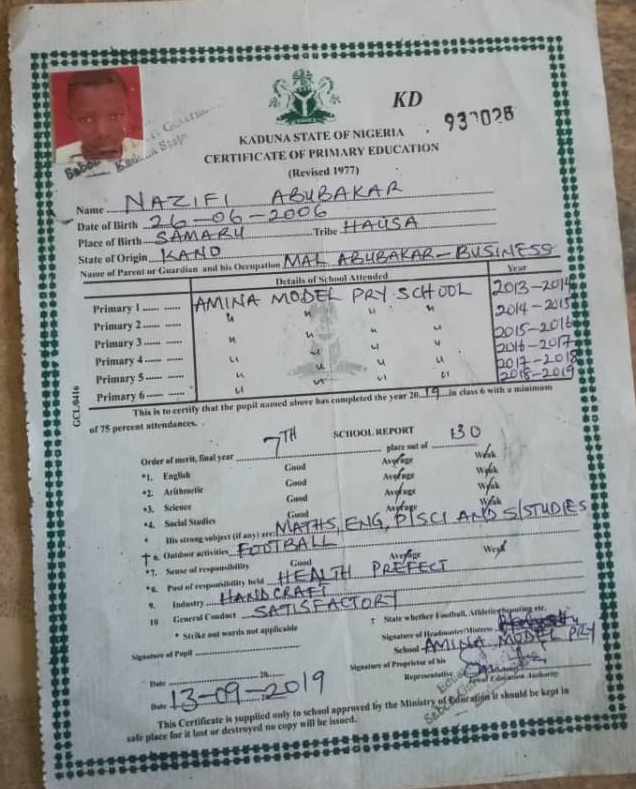 KD
937026
KADUNA STATE OF NIGERIA
CERTIFICATE OF PRIMARY EDUCATION
(Revised 1977)
Name NAZIFI ABUBAKAR
Date of Birth 26-06-2006
Place of Birth SAMARU Tribe HAUSA
State of Origin KANO
Name of Parent or Guardian and his Occupation MAL ABUBAKAR-BUSINESS
Details of School Attended Year
Primary 1 AMINA MODEL PRY SCHOOL 2013-2014
Primary 2 " " " " 2014-2015
Primary 3 " " " " 2015-2016
Primary 4 " " " " 2016-2017
Primary 5 " " " " 2017-2018
Primary 6 " " " " 2018-2019
GCL/0416
This is to certify that the pupil named above has completed the year 2019 in class 6 with a minimum
of 75 percent attendances.
SCHOOL REPORT
Order of merit, final year 7TH place out of 130
*1. English Good Average Weak
*2. Arithmetic Good Average Weak
*3. Science Good Average Weak
*4. Social Studies Good Average Weak
* His strong subject (if any) are MATHS, ENG, P/SCI AND S/STUDIES
†6. Outdoor activities FOOTBALL
*7. Sense of responsibility Good Average Weak
*8. Post of responsibility held HEALTH PREFECT
9. Industry HANDCRAFT
10 General Conduct SATISFACTORY
* Strike out words not applicable
† State whether Football, Athletic Scouting etc.
Signature of Headmaster/Mistress
School AMINA MODEL PRY
Signature of Pupil
Signature of Proprietor of his
Representative
Local Education Authority
Date 20
Date 13-09-2019
This Certificate is supplied only to school approved by the Ministry of Education it should be kept in
safe place for it lost or destroyed no copy will be issued.